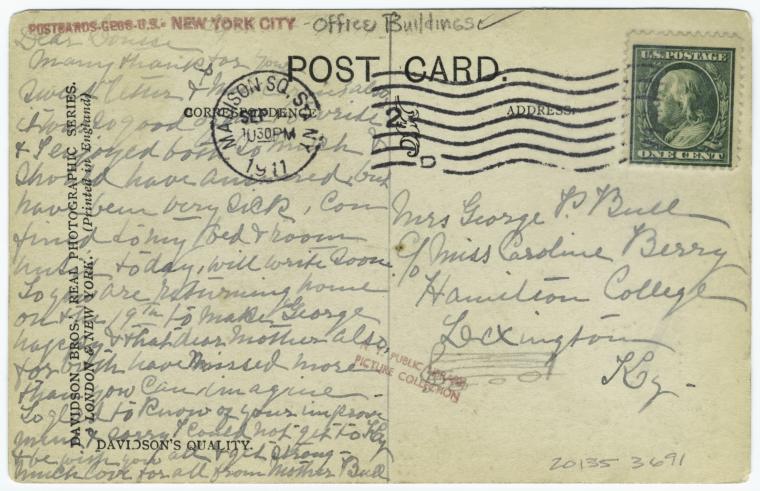 POSTCARDS-GEOG-U.S.- NEW YORK CITY - Office Buildings
POST CARD.
CORRESPONDENCE
ADDRESS.
MADISON SQ. STA. N.Y.
SEP
1030PM
1911
2
D
U.S. POSTAGE
ONE CENT
DAVIDSON BROS. REAL PHOTOGRAPHIC SERIES.
LONDON & NEW YORK. (Printed in England)
DAVIDSON'S QUALITY.
Dear Louise
Many thanks for your
Sweet letter &
so good write
& I enjoyed both so much
Should have answered, but
have been very sick, Con
fined to my bed & room
until today, will write soon
So you are returning home
on the 19th to make George
happy & that dear Mother also,
for both have missed more
than you can imagine -
So glad to know of your improve
ment & sorry I could not get to Ky
& be with you all & get strong -
much love for all from Mother Bull
Mrs George P. Bull
c/o Miss Caroline Berry
Hamilton College
Lexington
Ky -
PUBLIC LIBRARY
PICTURE COLLECTION
20135 3691